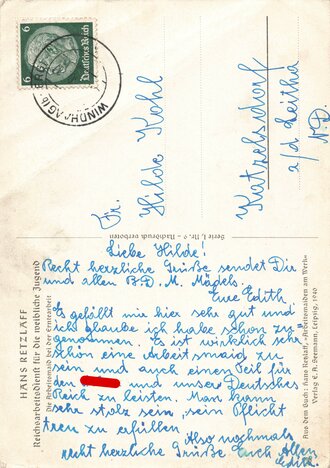 Deutsches Reich
6 6
WINDHAAG
Fr.
Hilde Kohl
Katzelsdorf
a/d Leitha
ND
Serie I, Nr. 9 – Nachdruck verboten
HANS RETZLAFF
Reichsarbeitsdienst für die weibliche Jugend
Die Arbeitsmaid bei der Erntearbeit
Aus dem Buch: Hans Retzlaff, „Arbeitsmaiden am Werk“
Verlag E. A. Seemann, Leipzig, 1940
Liebe Hilde!
Recht herzliche Grüße sendet Dir
und allen B.D.M. Mädels
Eure Edith
Es gefällt mir hier sehr gut und
ich glaube ich habe schon zu-
genommen. Es ist wirklich sehr
schön eine Arbeitsmaid zu
sein und auch einen Teil für
den und unser Deutsches
Reich zu leisten. Man kann
sehr stolz sein, sein Pflicht
treu zu erfüllen.
Also nochmals
recht herzliche Grüße Euch Allen
Edith